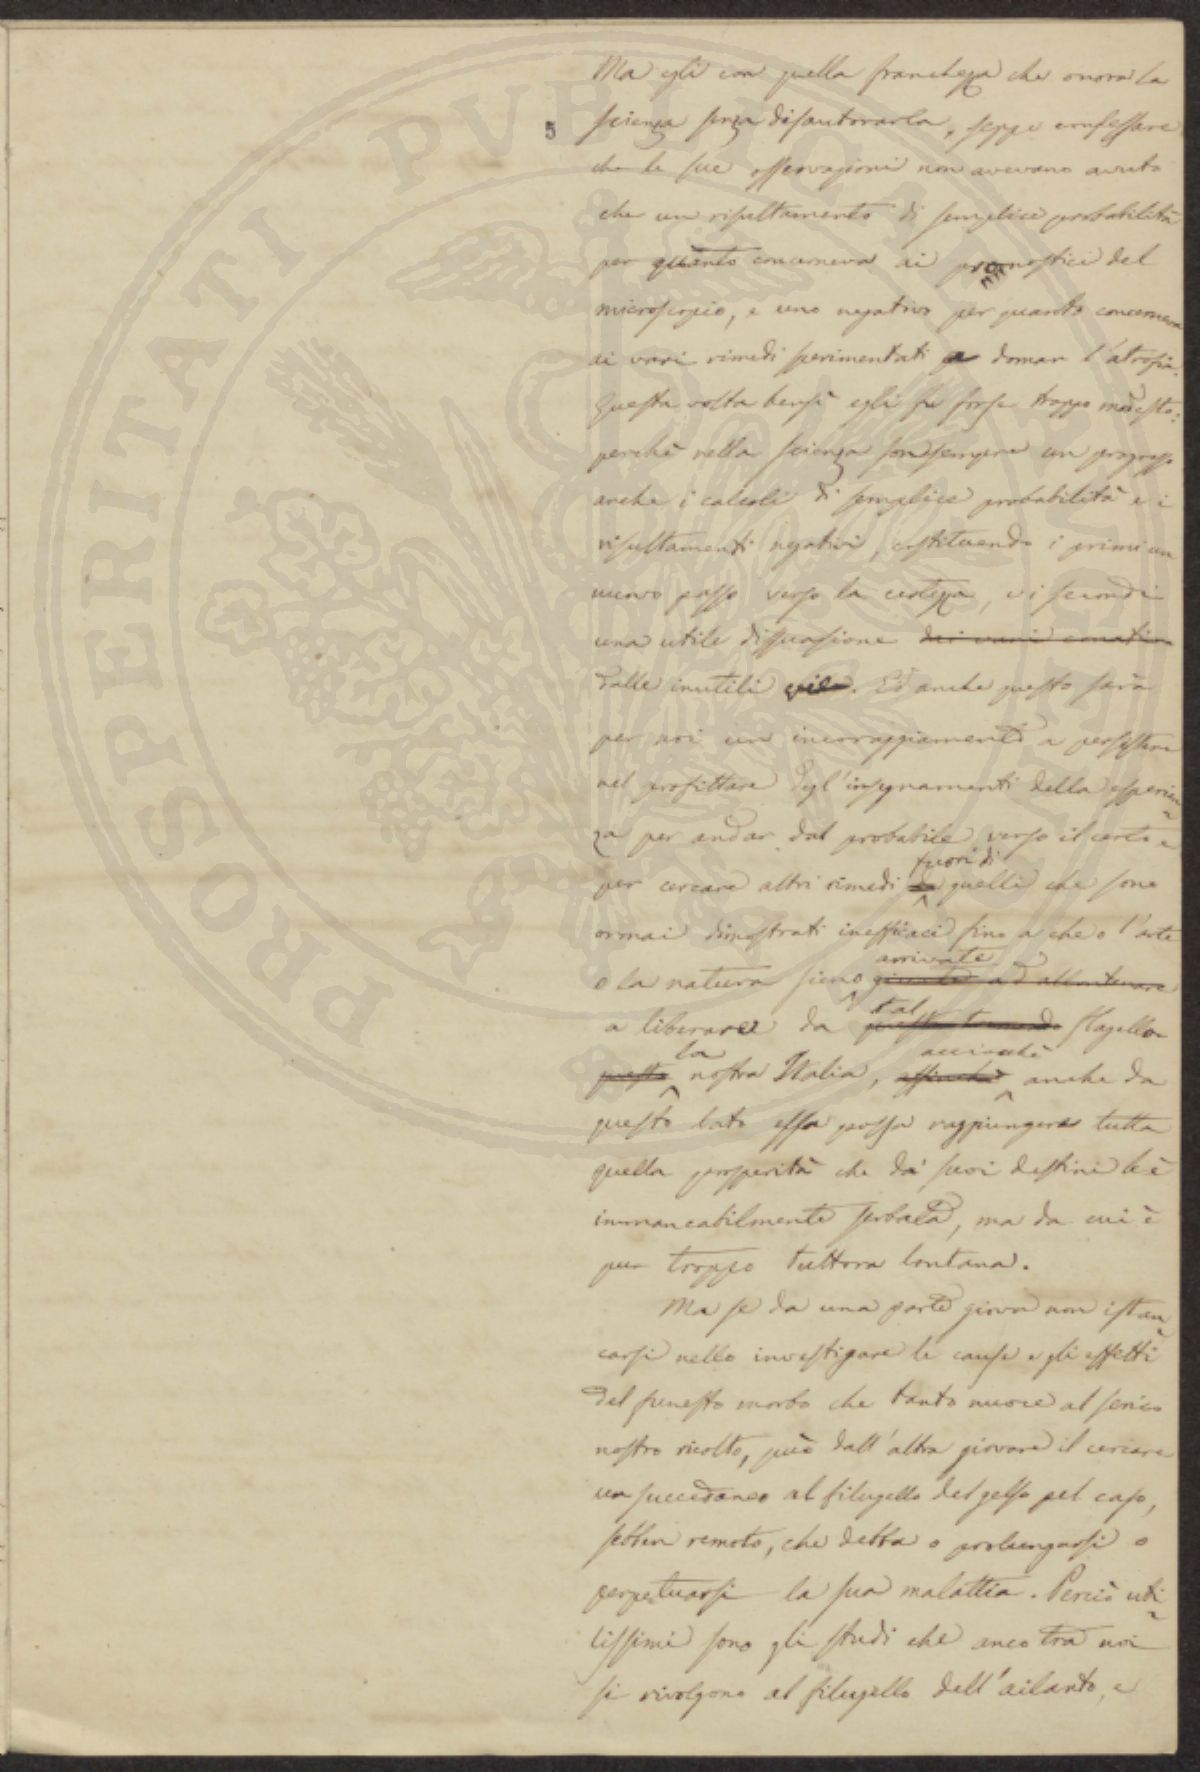 Ma egli con quella franchezza che onora la
scienza senza disautorarla, seppe confessare
che le sue osservazioni non avevano avuto
che un risultamento di semplice probabilità
per quanto concerneva ai pronostici del
microscopio, e uno negativo per quanto concerneva
ai vari rimedi sperimentati a domar l'atrofia.
Questa volta bensì egli fu forse troppo modesto:
perchè nella scienza son sempre un progresso
anche i calcoli di semplice probabilità e i
risultamenti negativi, costituendo i primi un
nuovo passo verso la certezza, e i secondi
una utile dissuasione dai vani conati
dalle inutili vie. Ed anche questo sarà
per noi un incoraggiamento a persistere
nel profittare degl'insegnamenti della esperien
za per andar dal probabile verso il certo e
fuori di
per cercare altri rimedi da quelli che sono
ormai dimostrati inefficaci fino a che o l'arte
arrivate
o la natura sieno giunte ad allontanare
tal
a liberare da questo tremendo flagello
la acciocchè
questa nostra Italia, affinchè anche da
questo lato essa possa raggiungere tutta
quella prosperità che da' suoi destini le è
immancabilmente serbata, ma da cui è
pur troppo tuttora lontana.
Ma se da una parte giova non istan
carsi nello investigare le cause e gli effetti
del funesto morbo che tanto nuoce al serico
nostro ricolto, può dall'altra giovare il cercare
un succedaneo al filugello del gelso pel caso,
sebben remoto, che debba o prolungarsi o
perpetuarsi la sua malattia. Perciò uti
lissimi sono gli studi che anco tra noi
si rivolgono al filugello dell'ailanto, e
5
PROSPERITATI PVBLICAE